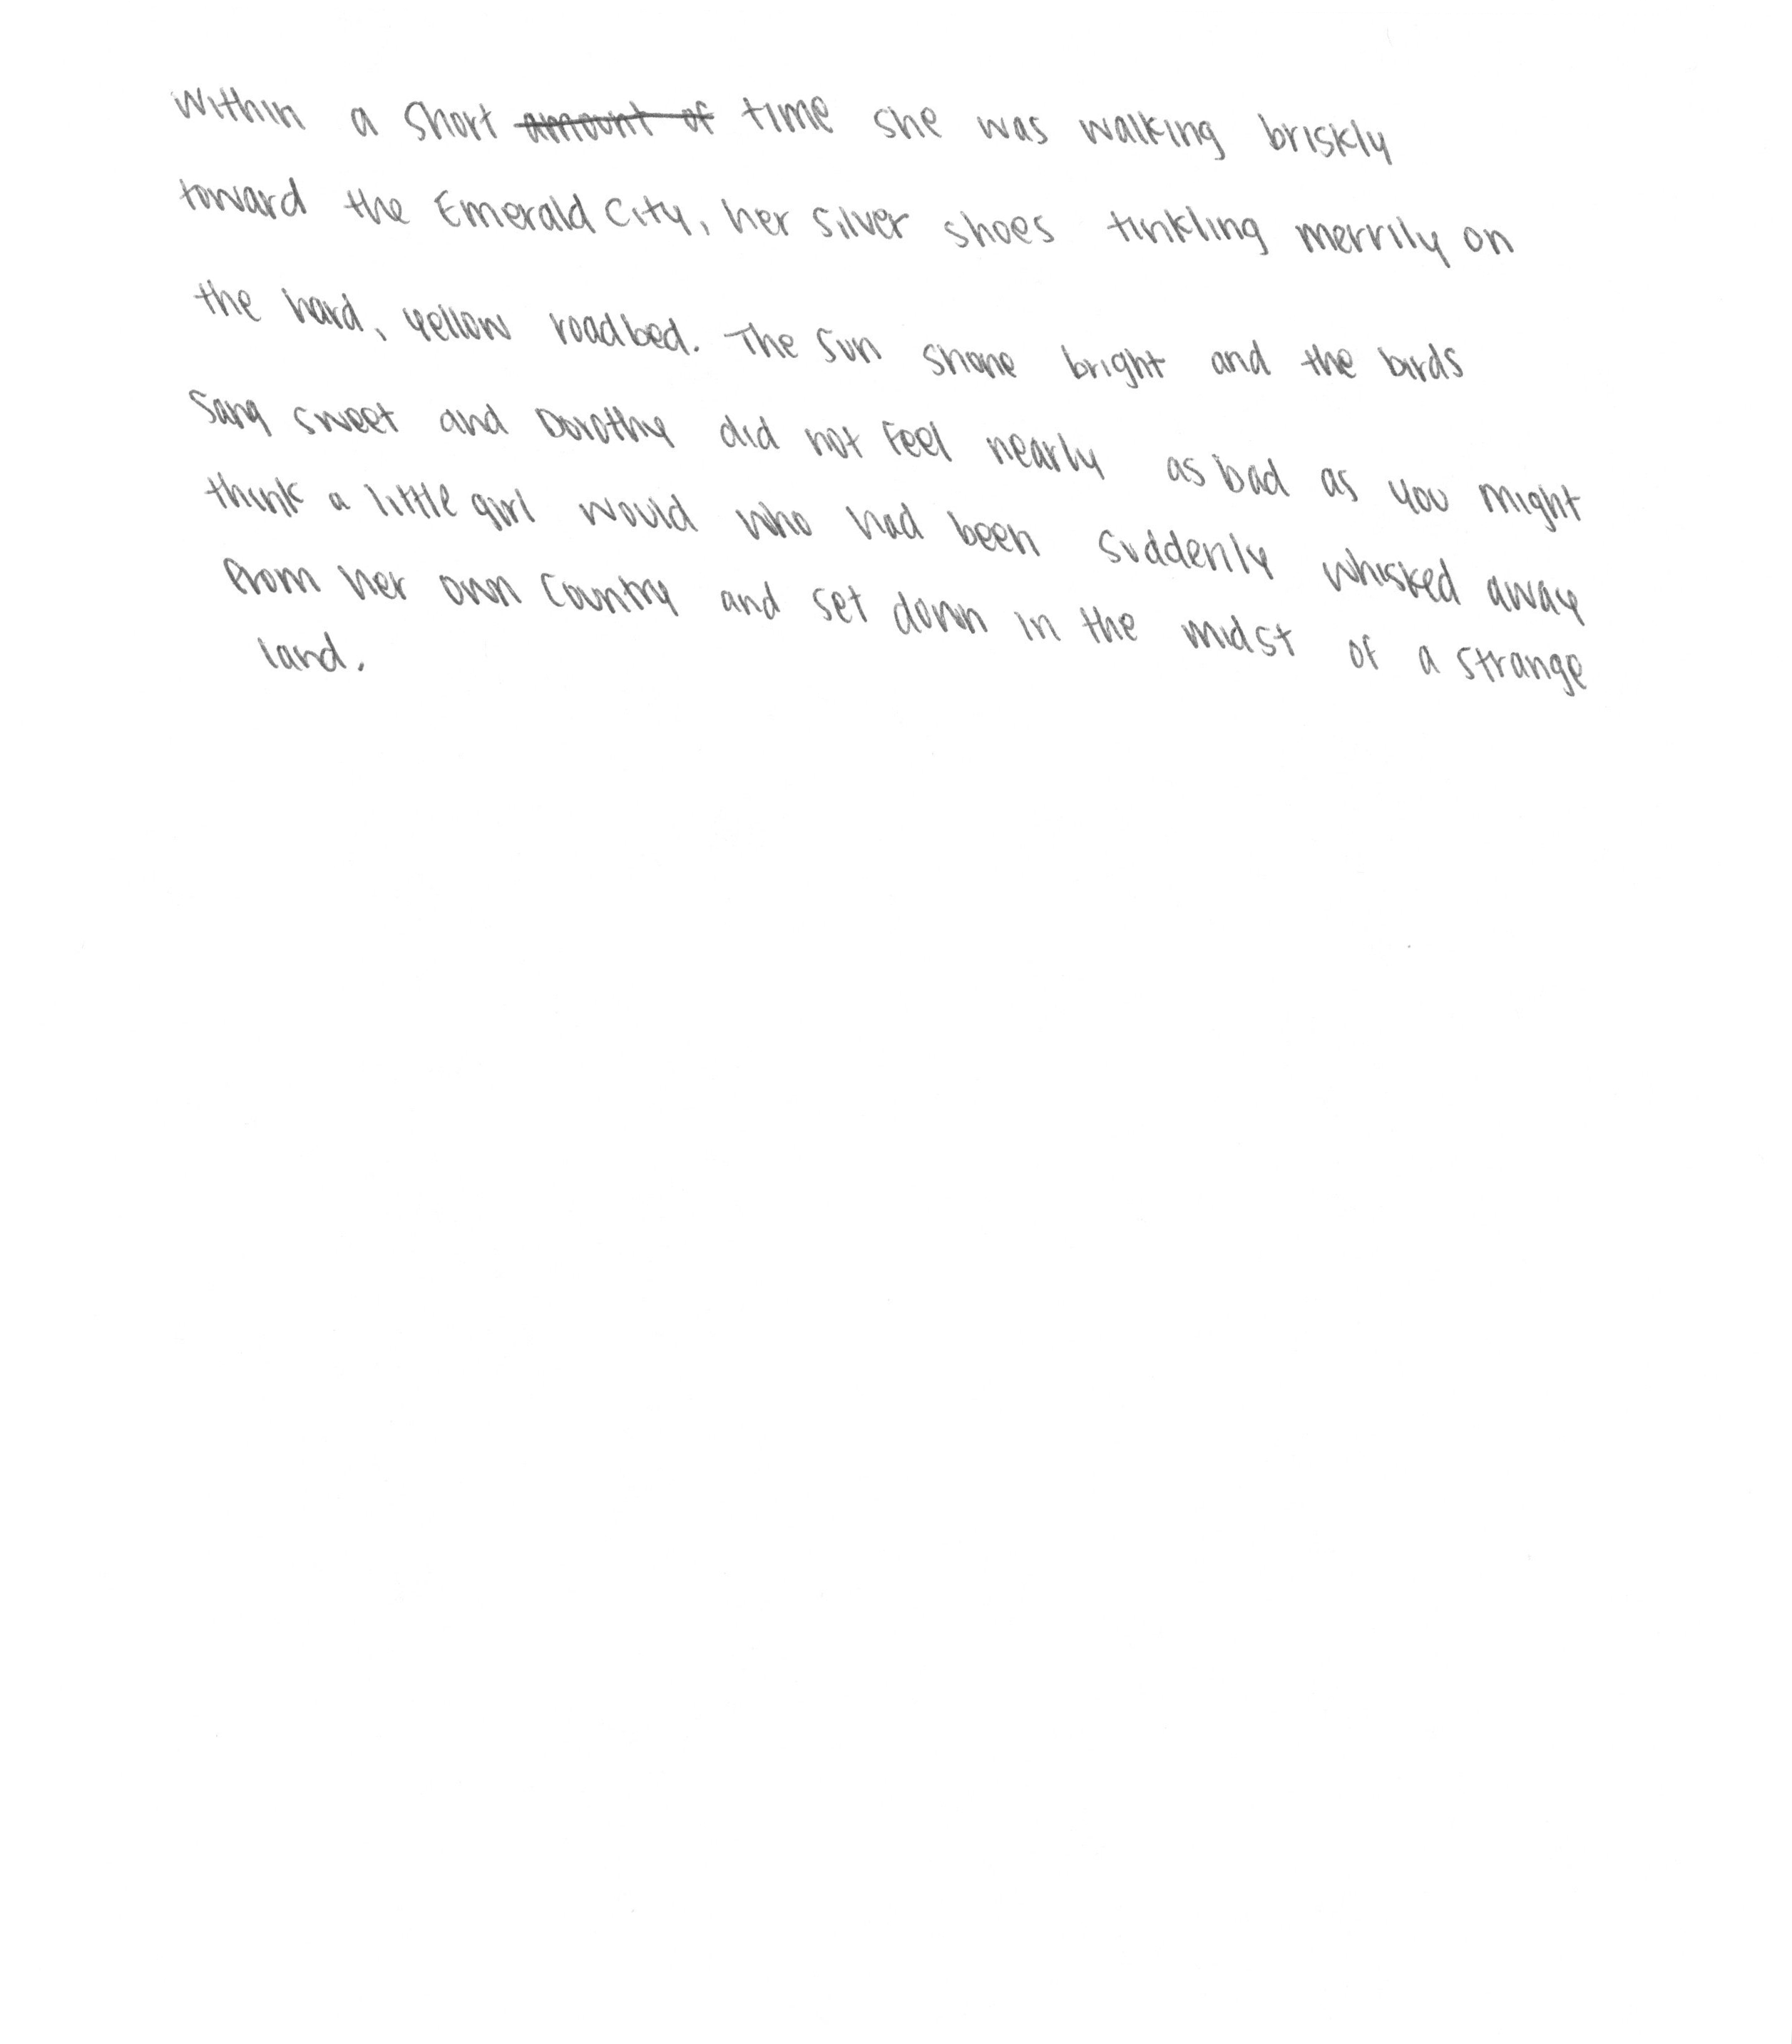 Within a short ~~amount of~~ time she was walking briskly
toward the Emerald City, her silver shoes tinkling merrily on
the hard, yellow roadbed. The sun shone bright and the birds
sang sweet and Dorothy did not feel nearly as bad as you might
think a little girl would who had been suddenly whisked away
from her own country and set down in the midst of a strange
land.